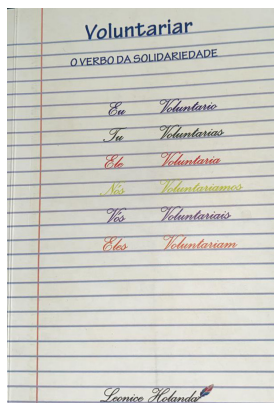 Voluntariar
O VERBO DA SOLIDARIEDADE
Eu Voluntario
Tu Voluntarias
Ele Voluntaria
Nós Voluntariamos
Vós Voluntariais
Eles Voluntariam
Leonice Holanda